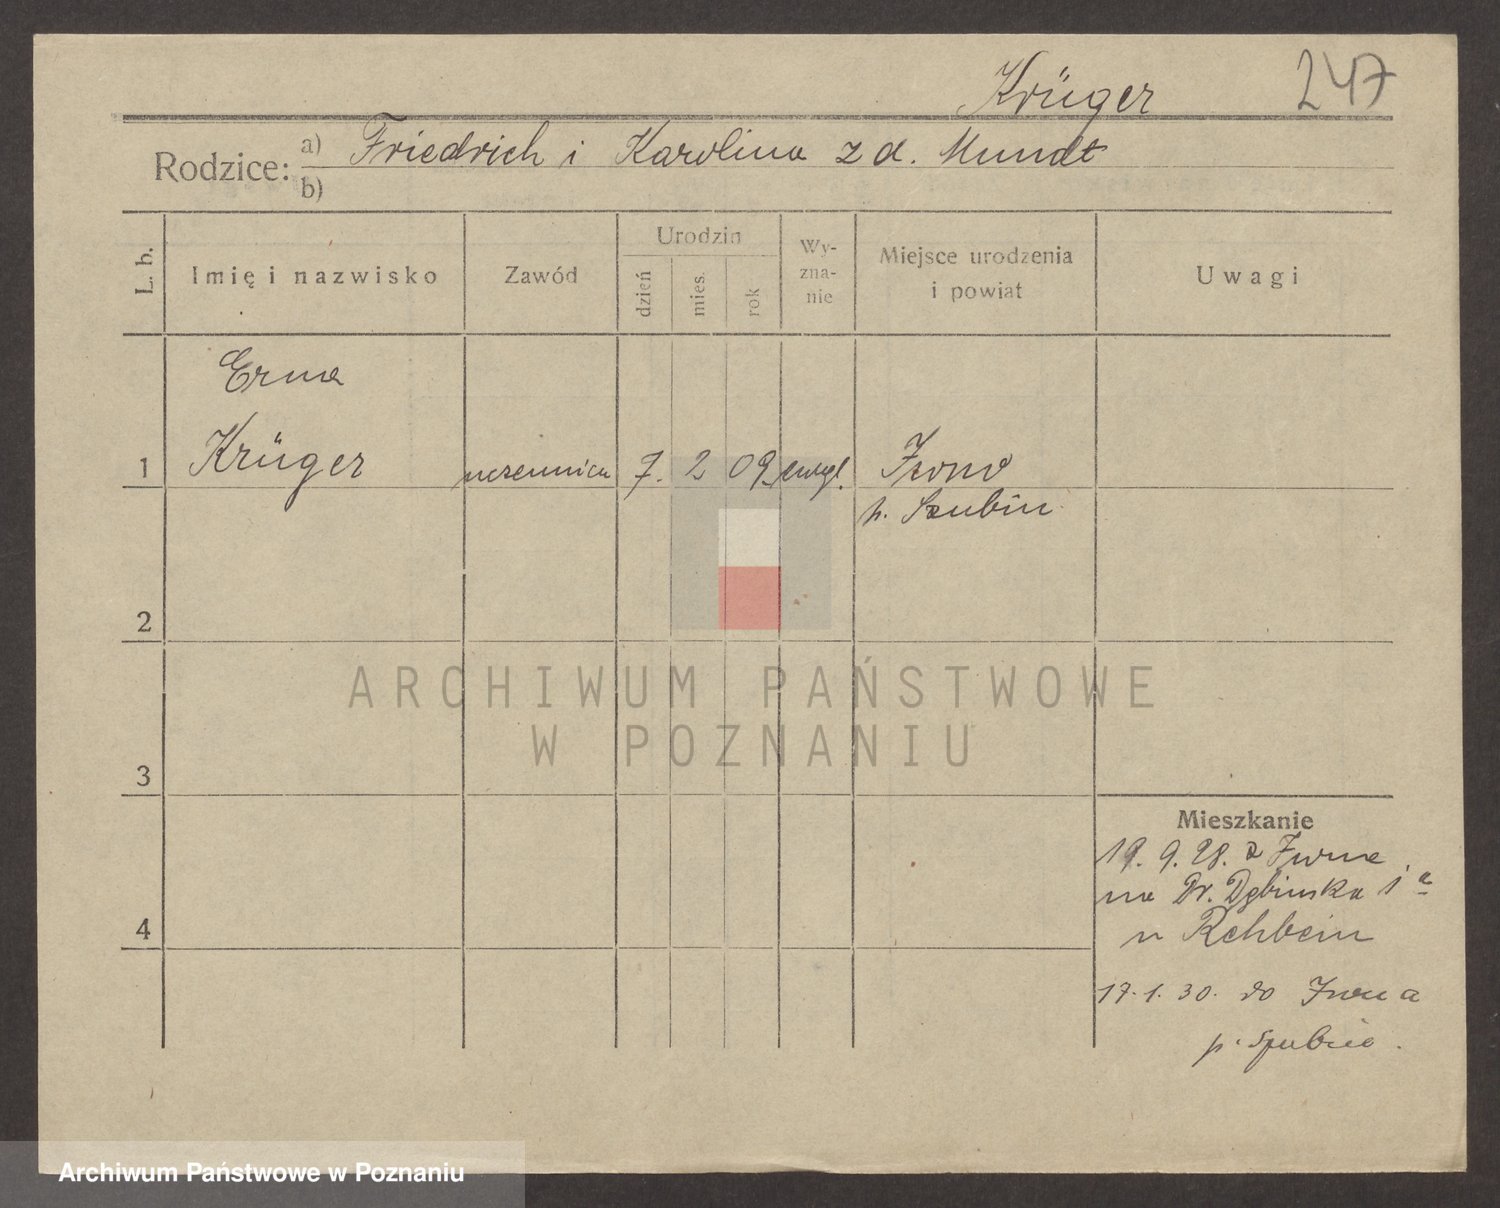 Krüger 247
Rodzice: a) Friedrich i Karolina z d. Mundt
b)
L. b. Imię i nazwisko Zawód Urodzin dzień mies. rok Wy-zna-nie Miejsce urodzenia i powiat Uwagi
Erna
1 Krüger uczennica 7. 2 09. ewgl. Iwno
p. Szubin
2
3
4
Mieszkanie
19. 9. 28. z Iwna
na Dr. Dębinska 1 a
u Rehbein
17. 1. 30. do Iwna
p. Szubin.
ARCHIWUM PAŃSTWOWE
W POZNANIU
Archiwum Państwowe w Poznaniu